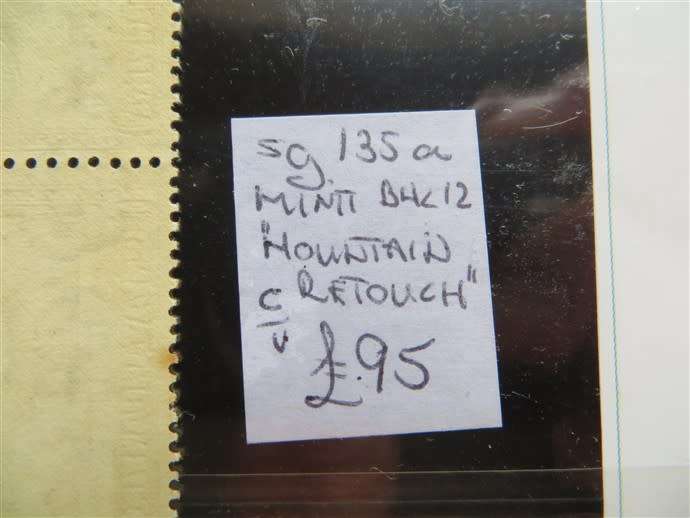 sg. 135a
MINT BLK12
"MOUNTAIN
RETOUCH"
c/v £95